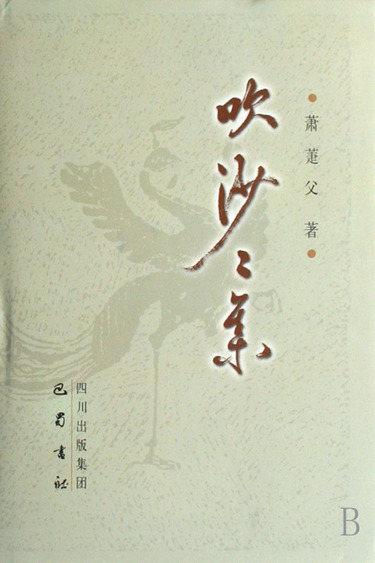 萧萐父 著
吹沙二集
四川出版集团
巴蜀书社
B